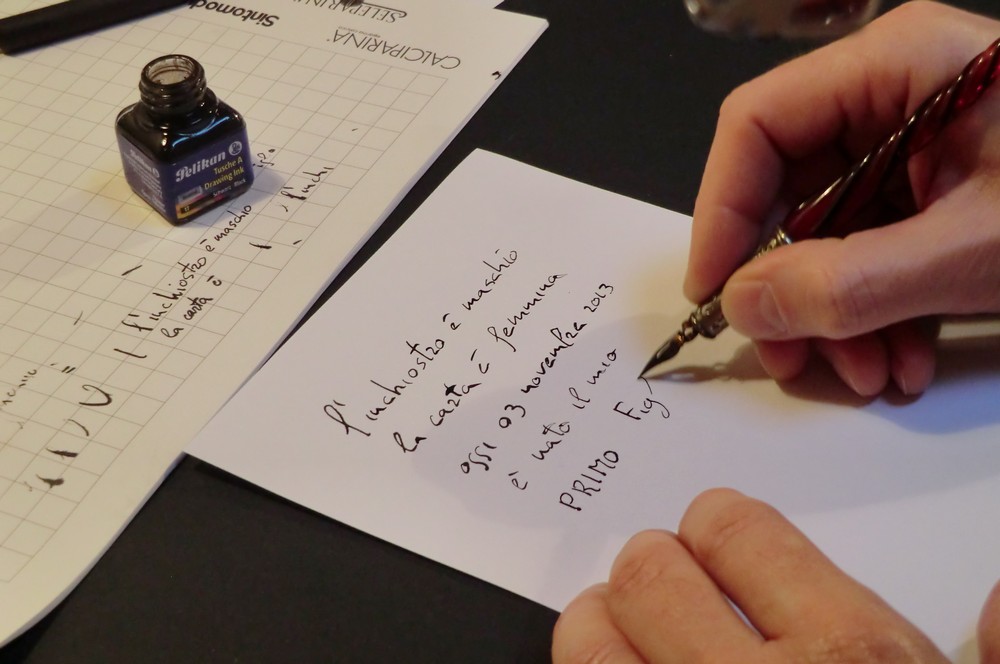 Sintomod
SELEPARINA
CALCIPARINA®
Pelikan
Tusche A
Drawing Ink
Schwarz Black
l'inchiostro è maschio
la carta è
l'inchi
l'inchiostro è maschio
la carta è femmina
oggi 03 novembre 2013
è nato il mio
PRIMO Fig